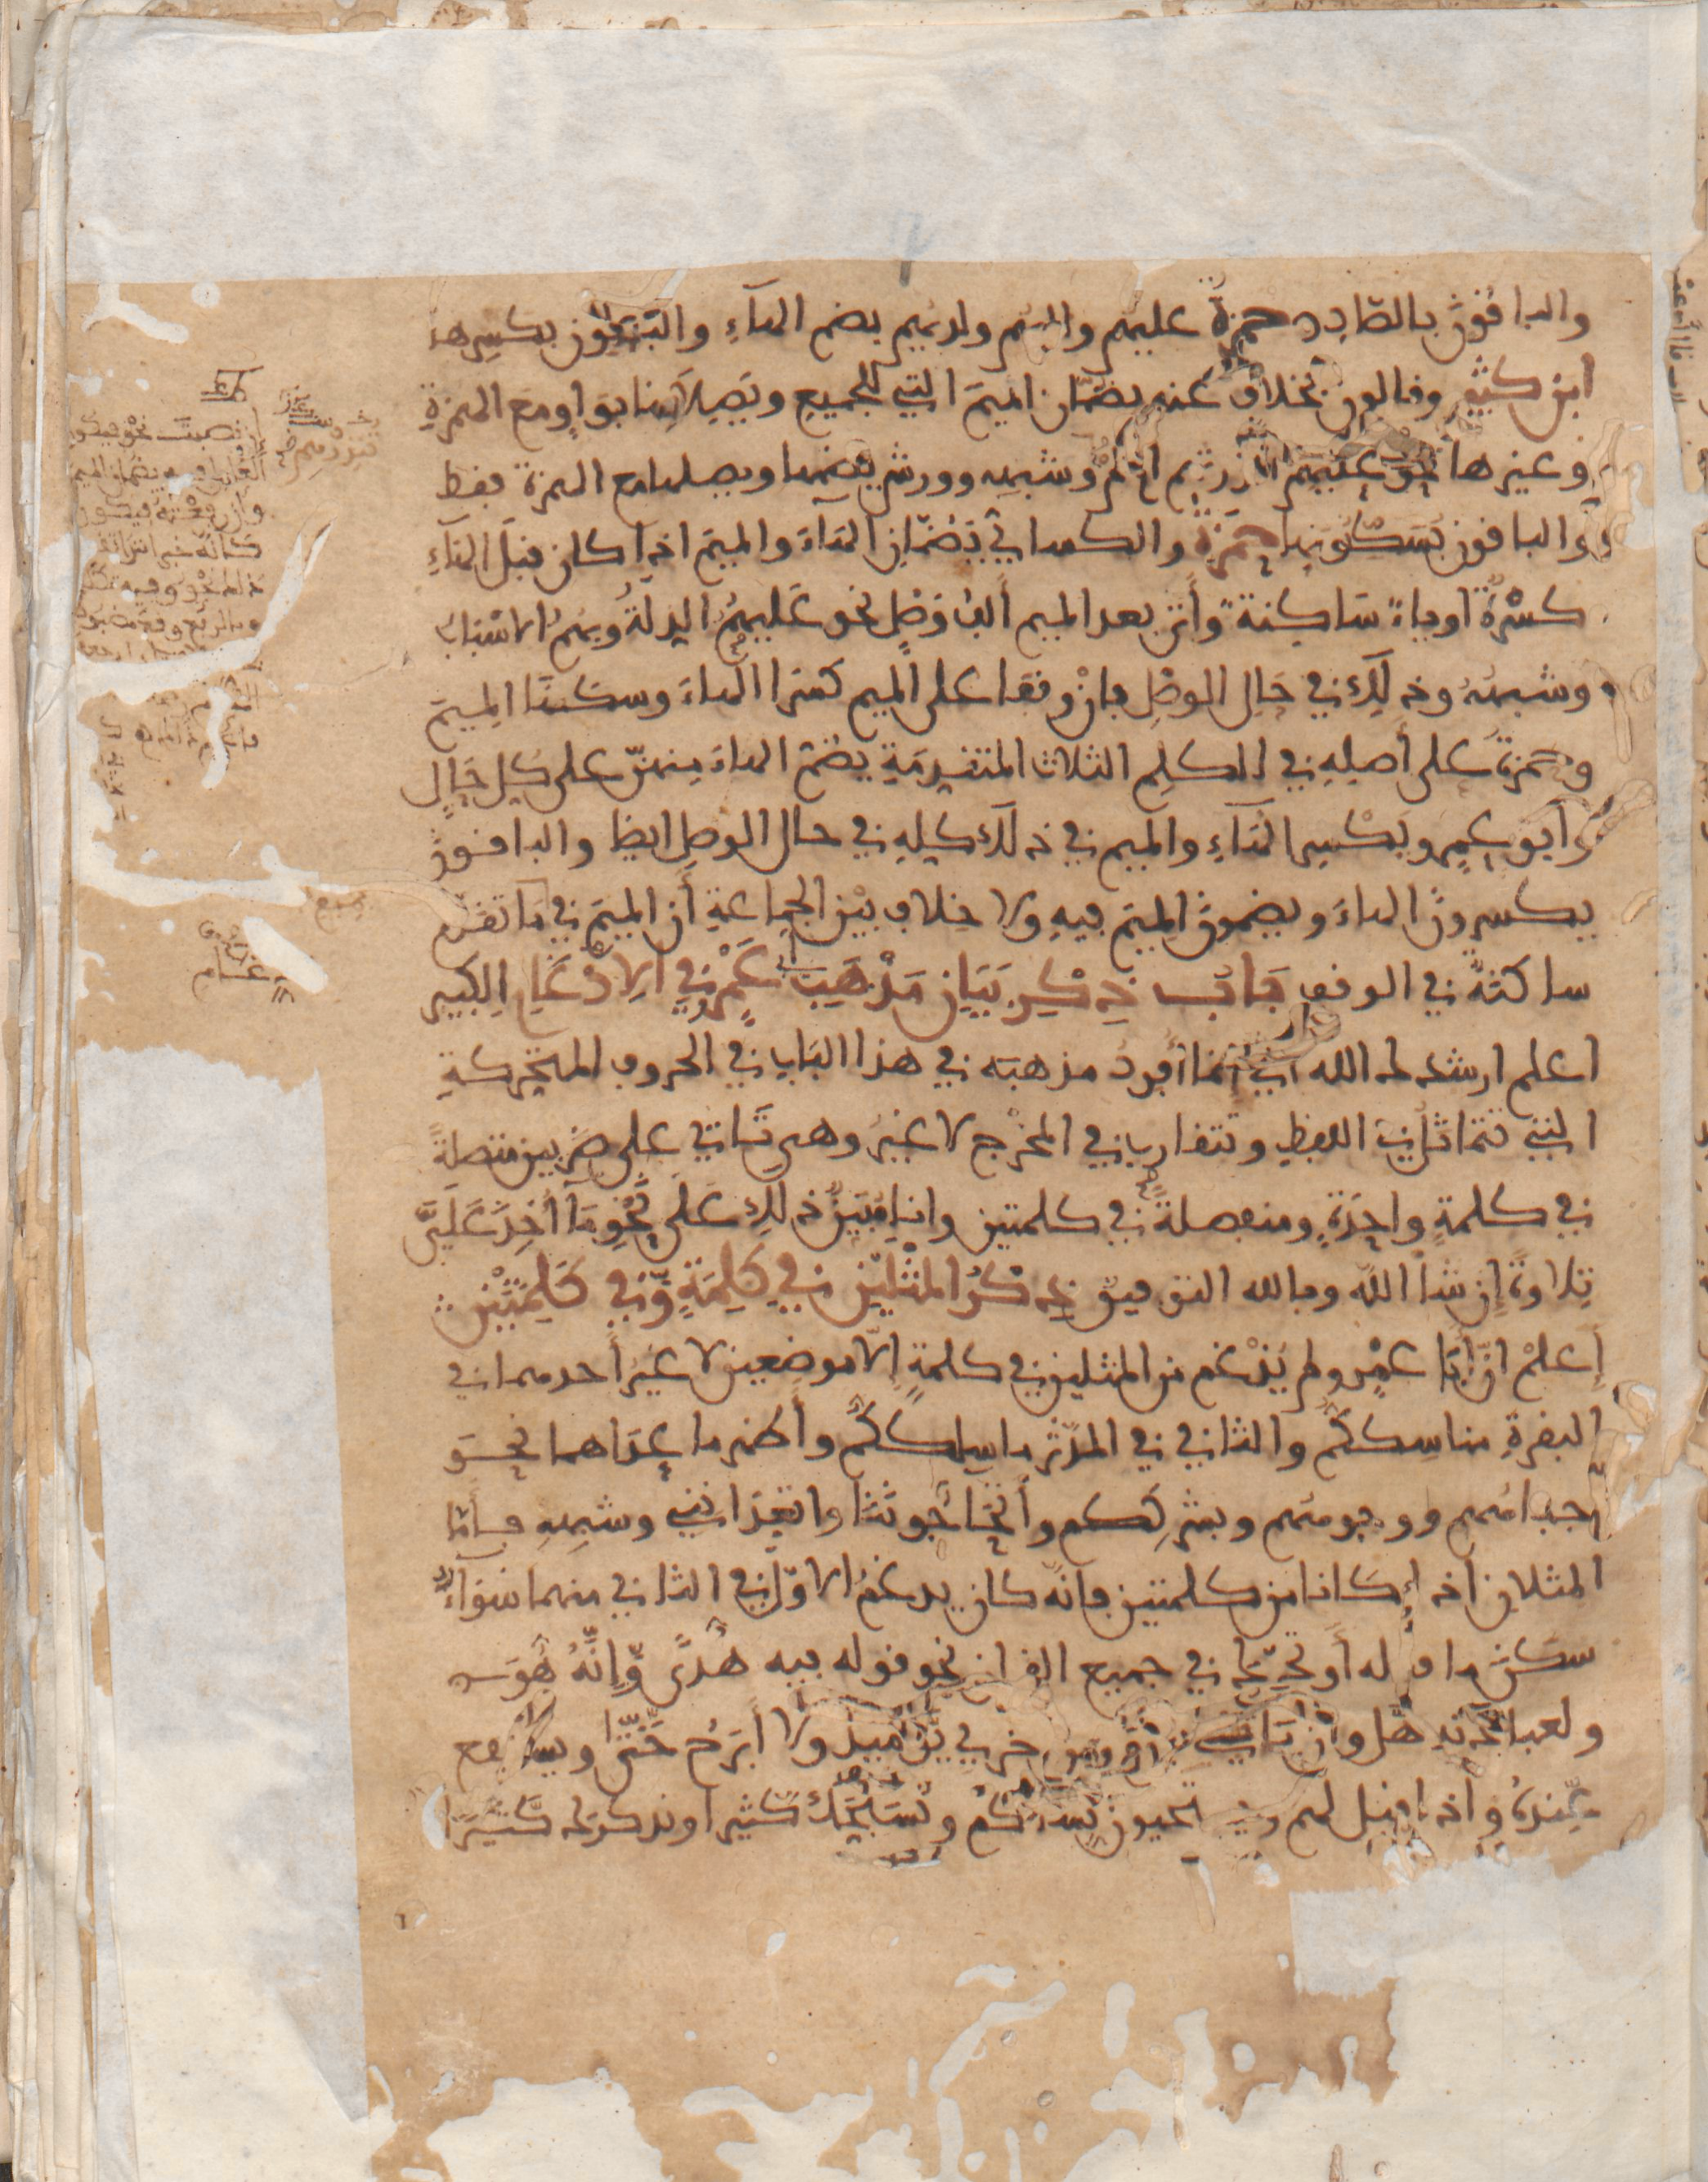 والباقون بالصّاد حمزة عليهم واليهم ولديهم بضم الهآء والباقون بكسرها
ابن كثير وقالون بخلاف عنه يضمّان الميم التي للجميع ويصلانها بواو مع الهمزة
وغيرها نحو عليهم ءانذرتهم ام لم وشبهه وورش يضمها ويصلها مع الهمزة فقط
والباقون يسكنونها حمزة والكسائي يضمّان الهآء والميم اذا كان قبل الهآء
كسرة او ياء ساكنة وأتى بعد الميم ألف وصل نحو عليهم الذلة وبهم الاسباب
وشبهه وذلك في حال الوصل فان وقفا على الميم كسرا الهاء وسكنا الميم
وحمزة على أصله في الكلم الثلاث المتقدمة يضم الهاء منهنّ على كل حال
وأبو عمرو يكسر الهآء والميم في ذلك كله في حال الوصل ايضا والباقون
يكسرون الهاء ويضمون الميم فيه ولا خلاف بين الجماعة أن الميم في ما تقدم
ساكنة في الوقف باب ذكر بيان مذهب أبي عمرو في الادغام الكبير
اعلم ارشدك الله أني إنما أفرد مذهبه في هذا الباب في الحروف المتحركة
التي تتماثل في اللفظ وتتقارب في المخرج لا غير وهي تاتي على ضربين متصلة
في كلمة واحدة ومنفصلة في كلمتين وانا مبين ذلك على نحو ما أخذ علىّ
تلاوة إن شآ الله وبالله التوفيق ذكر المثلين في كلمة وفي كلمتين
إعلم انّ أبا عمرو لم يدغم من المثلين في كلمة إلا موضعين لا غير أحدهما في
البقرة مناسككم والثاني في المدّثر ما سلككم وأظهر ما عداهما نحو
جباههم ووجوههم وبشرككم وأتحاجوننا واتعدانني وشبهه فأما
المثلان اذا كانا من كلمتين فانه كان يدغم الاوّل في الثاني منهما سوآء
سكن ما قبله أو تحرّك في جميع القرءان نحو قوله فيه هدًى وّإنّه هّو
ولعبادته هّل وأن ياتي يّوم ومن خزي يّومئذ ولا أبرح حّتّى ويشفع
عّنده وإذا قيل لهم ويستحيون نّساءكم ونسبحك كّثيرا ونذكرك كّثيرًا